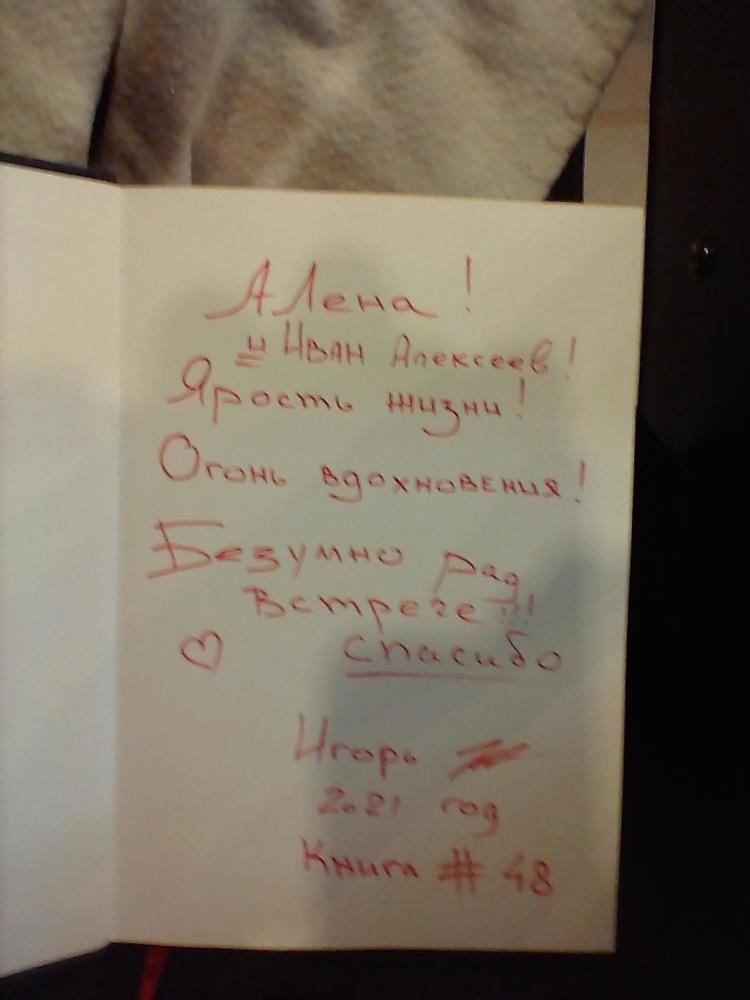 Алена!
и Иван Алексеев!
Ярость жизни!
Огонь вдохновения!
Безумно рад
встрече!!!
♡ спасибо
Игорь
2021 год
Книга # 48